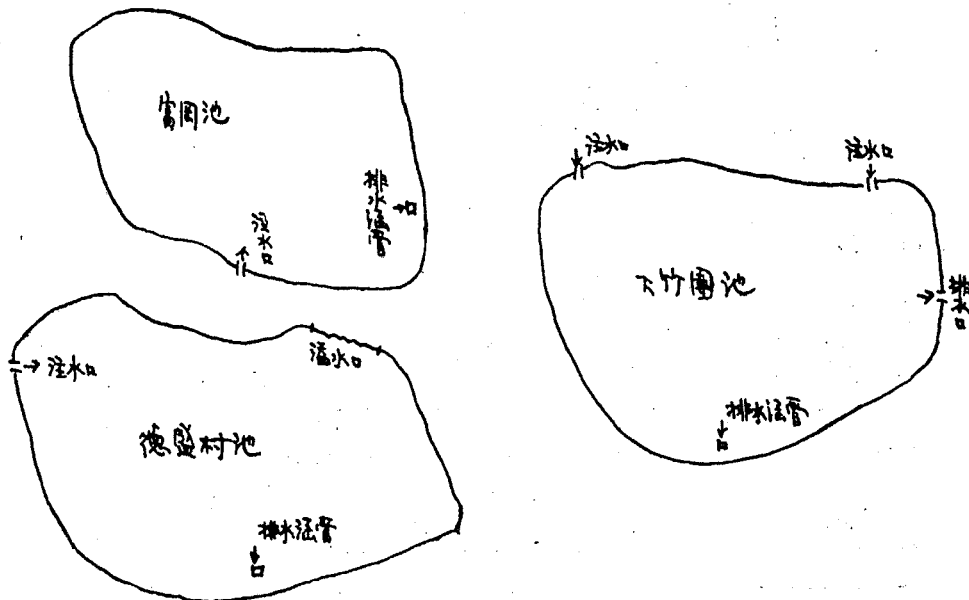 富岡池
排水涵管
注水口
注水口
溢水口
德盛村池
排水涵管
注水口
注水口
下竹圍池
排水口
排水涵管